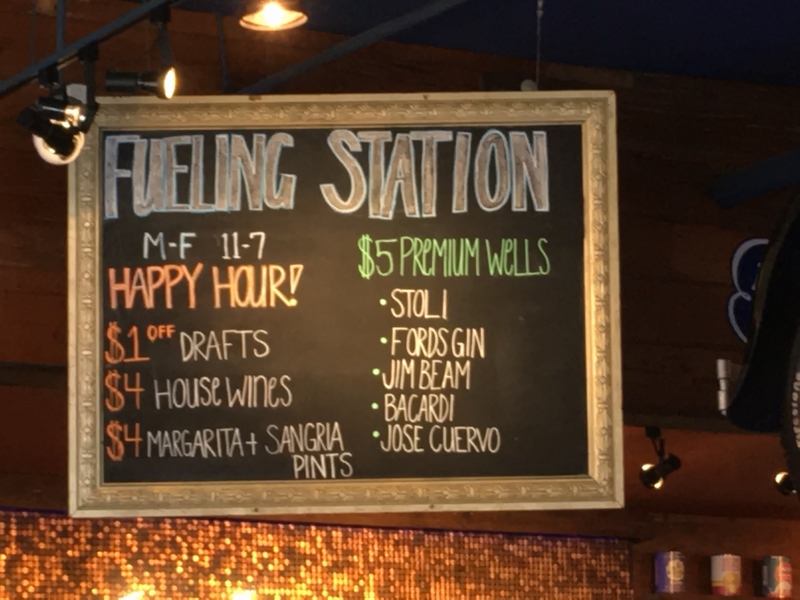 FUELING STATION
M-F 11-7
HAPPY HOUR!
$1 OFF DRAFTS
$4 HOUSE WINES
$4 MARGARITA + SANGRIA
PINTS
$5 PREMIUM WELLS
• STOLI
• FORDS GIN
• JIM BEAM
• BACARDI
• JOSE CUERVO